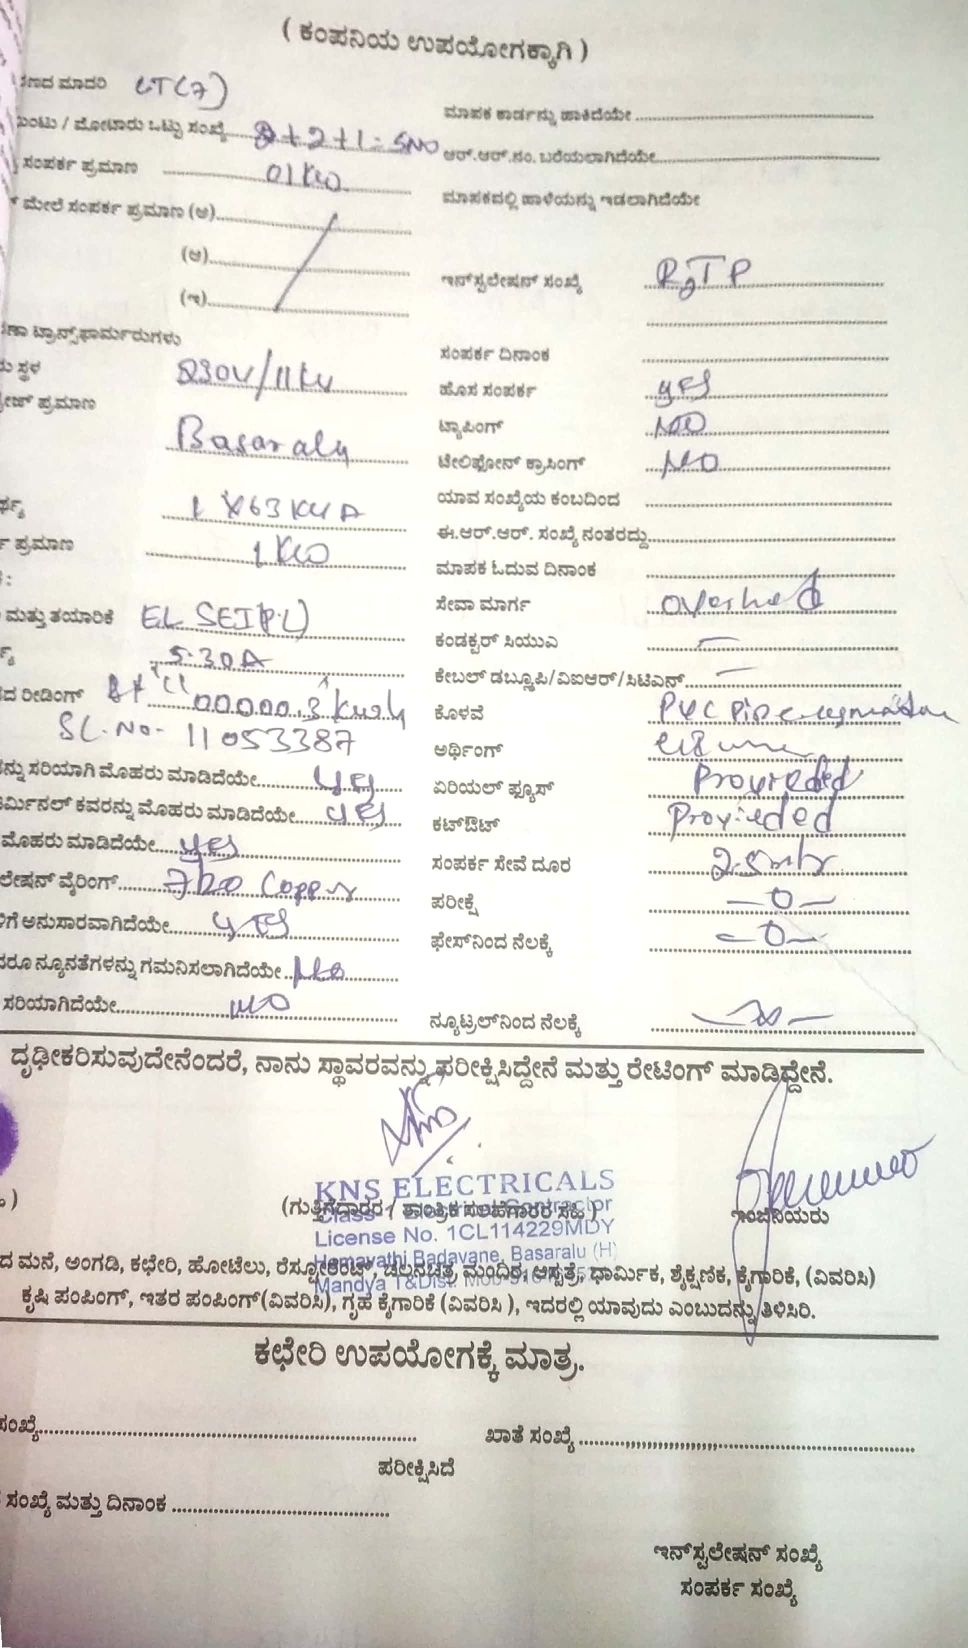 ( ಕಂಪನಿಯ ಉಪಯೋಗಕ್ಕಾಗಿ )
ಮಾದರಿ LT(7)
ಮೋಟಾರು ಒಟ್ಟು ಸಂಖ್ಯೆ 2+2+1=5NO
ಸಂಪರ್ಕ ಪ್ರಮಾಣ 01KW
ಮೇಲೆ ಸಂಪರ್ಕ ಪ್ರಮಾಣ (ಅ)
(ಆ)
(ಇ)
ಟ್ರಾನ್ಸ್‌ಫಾರ್ಮರುಗಳು
ಸ್ಥಳ 230V/11KV
ಪ್ರಮಾಣ
Basaralu
1X63KVA
ಪ್ರಮಾಣ 1KW
ಮತ್ತು ತಯಾರಿಕೆ EL SEI(P.L)
5-30A
ರೀಡಿಂಗ್ 000000.3 Kwh
SL.No- 11053387
ಸರಿಯಾಗಿ ಮೊಹರು ಮಾಡಿದೆಯೇ yes
ಕವರನ್ನು ಮೊಹರು ಮಾಡಿದೆಯೇ yes
ಮೊಹರು ಮಾಡಿದೆಯೇ yes
ವೈರಿಂಗ್ 7/20 Copper
ಅನುಸಾರವಾಗಿದೆಯೇ yes
ನ್ಯೂನತೆಗಳನ್ನು ಗಮನಿಸಲಾಗಿದೆಯೇ No
ಸರಿಯಾಗಿದೆಯೇ NO
ಮಾಪಕ ಕಾರ್ಡನ್ನು ಹಾಕಿದೆಯೇ
ಆರ್.ಆರ್.ನಂ. ಬರೆಯಲಾಗಿದೆಯೇ
ಮಾಪಕದಲ್ಲಿ ಹಾಳೆಯನ್ನು ಇಡಲಾಗಿದೆಯೇ
ಇನ್‌ಸ್ಟಲೇಷನ್ ಸಂಖ್ಯೆ RJTP
ಸಂಪರ್ಕ ದಿನಾಂಕ
ಹೊಸ ಸಂಪರ್ಕ yes
ಟ್ಯಾಪಿಂಗ್ NO
ಟೇಲಿಫೋನ್ ಕ್ರಾಸಿಂಗ್ NO
ಯಾವ ಸಂಖ್ಯೆಯ ಕಂಬದಿಂದ
ಈ.ಆರ್.ಆರ್. ಸಂಖ್ಯೆ ನಂತರದ್ದು
ಮಾಪಕ ಓದುವ ದಿನಾಂಕ
ಸೇವಾ ಮಾರ್ಗ overhed
ಕಂಡಕ್ಟರ್ ಸಿಯುಎ —
ಕೇಬಲ್ ಡಬ್ಲ್ಯೂಪಿ/ವಿಐಆರ್/ಸಿಟಿಎನ್ —
ಕೊಳವೆ PVC Pipe
ಅರ್ಥಿಂಗ್
ಏರಿಯಲ್ ಫ್ಯೂಸ್ Provieded
ಕಟ್‌ಔಟ್ Provieded
ಸಂಪರ್ಕ ಸೇವೆ ದೂರ 25mtr
ಪರೀಕ್ಷೆ —0—
ಫೇಸ್‌ನಿಂದ ನೆಲಕ್ಕೆ —0—
ನ್ಯೂಟ್ರಲ್‌ನಿಂದ ನೆಲಕ್ಕೆ
ದೃಢೀಕರಿಸುವುದೇನೆಂದರೆ, ನಾನು ಸ್ಥಾವರವನ್ನು ಪರೀಕ್ಷಿಸಿದ್ದೇನೆ ಮತ್ತು ರೇಟಿಂಗ್ ಮಾಡಿದ್ದೇನೆ.
KNS ELECTRICALS
(ಗುತ್ತಿಗೆದಾರರ / ತಾಂತ್ರಿಕ ಸಂಹೆಗಾರರ ಸಹಿ) ಇಂಜಿನಿಯರು
Class-1 Electrical Contractor
License No. 1CL114229MDY
Hemavathi Badavane, Basaralu (H)
ಮನೆ, ಅಂಗಡಿ, ಕಛೇರಿ, ಹೋಟೆಲು, ರೆಸ್ಟೋರೆಂಟ್, ಚಲನಚಿತ್ರ ಮಂದಿರ, ಆಸ್ಪತ್ರೆ, ಧಾರ್ಮಿಕ, ಶೈಕ್ಷಣಿಕ, ಕೈಗಾರಿಕೆ, (ವಿವರಿಸಿ)
Mandya T&Dist.
ಕೃಷಿ ಪಂಪಿಂಗ್, ಇತರ ಪಂಪಿಂಗ್(ವಿವರಿಸಿ), ಗೃಹ ಕೈಗಾರಿಕೆ (ವಿವರಿಸಿ ), ಇದರಲ್ಲಿ ಯಾವುದು ಎಂಬುದನ್ನು ತಿಳಿಸಿರಿ.
ಕಛೇರಿ ಉಪಯೋಗಕ್ಕೆ ಮಾತ್ರ.
ಸಂಖ್ಯೆ ಖಾತೆ ಸಂಖ್ಯೆ
ಪರೀಕ್ಷಿಸಿದೆ
ಸಂಖ್ಯೆ ಮತ್ತು ದಿನಾಂಕ
ಇನ್‌ಸ್ಟಲೇಷನ್ ಸಂಖ್ಯೆ
ಸಂಪರ್ಕ ಸಂಖ್ಯೆ